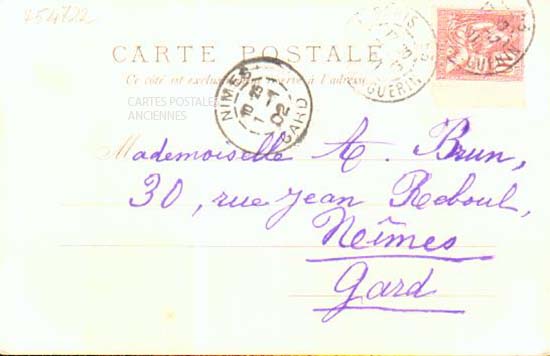 454722
CARTE POSTALE
Ce côté est exclusivement réservé à l'adresse
CARTES POSTALES
ANCIENNES
NIMES
10 25
1 -1
02
GARD
Mademoiselle A. Brun,
30, rue Jean Reboul,
Neîmes
Gard